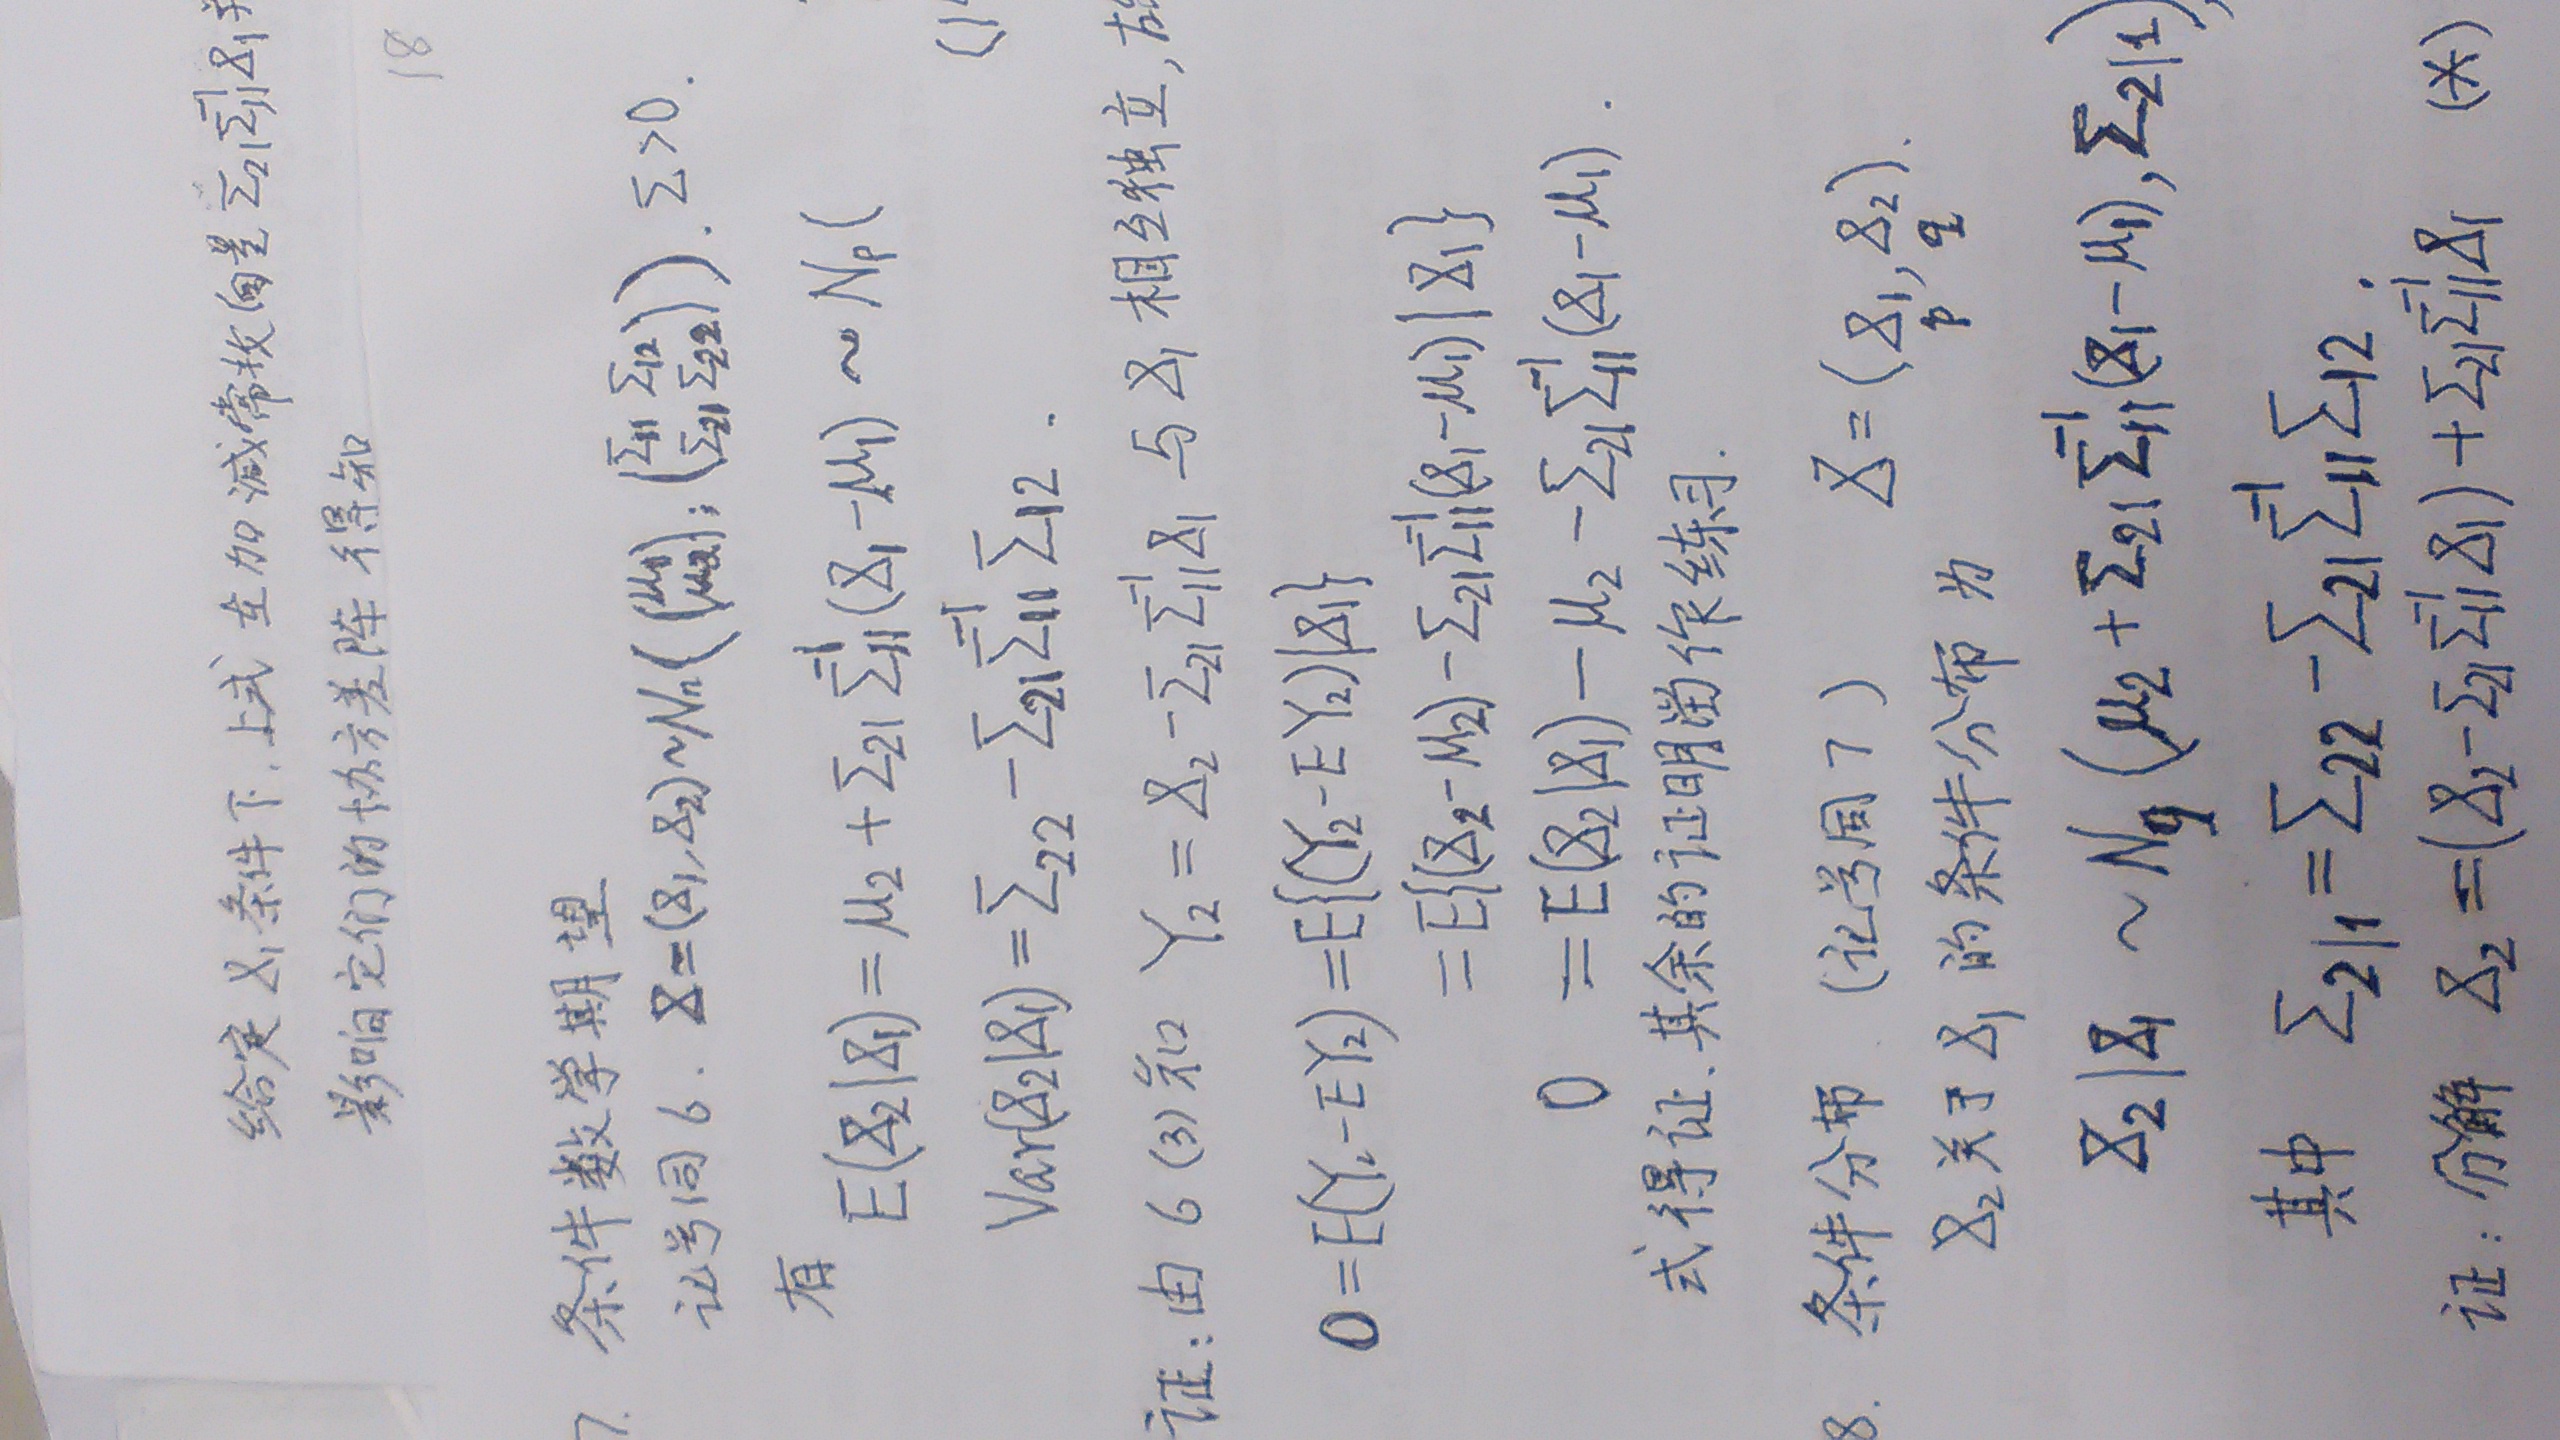 给定 X₁条件下,上式 左加减常数向量 Σ₂₁Σ₁₁⁻¹X₁
影响它们的协方差阵 得知
18
7. 条件数学期望
记号同6. X=(X₁,X₂)~Nₙ((μ₁ μ₂);(Σ₁₁ Σ₁₂ Σ₂₁ Σ₂₂)). Σ>0.
有
E(X₂|X₁)=μ₂+Σ₂₁Σ₁₁⁻¹(X₁-μ₁) ~ Nₚ(
Var(X₂|X₁)=Σ₂₂-Σ₂₁Σ₁₁⁻¹Σ₁₂.
证:由6(3)知 Y₂=X₂-Σ₂₁Σ₁₁⁻¹X₁ 与X₁相互独立,故
0=E(Y₂-EY₂)=E{(Y₂-EY₂)|X₁}
=E{(X₂-μ₂)-Σ₂₁Σ₁₁⁻¹(X₁-μ₁)|X₁}
0 =E(X₂|X₁)-μ₂-Σ₂₁Σ₁₁⁻¹(X₁-μ₁).
式得证.其余的证明留作练习.
8. 条件分布 (记号同7) X=(X₁,X₂).
p q
X₂关于X₁的条件分布为
X₂|X₁ ~ N_q(μ₂+Σ₂₁Σ₁₁⁻¹(X₁-μ₁),Σ₂|₁),
其中 Σ₂|₁=Σ₂₂-Σ₂₁Σ₁₁⁻¹Σ₁₂.
证:分解 X₂=(X₂-Σ₂₁Σ₁₁⁻¹X₁)+Σ₂₁Σ₁₁⁻¹X₁ (*)